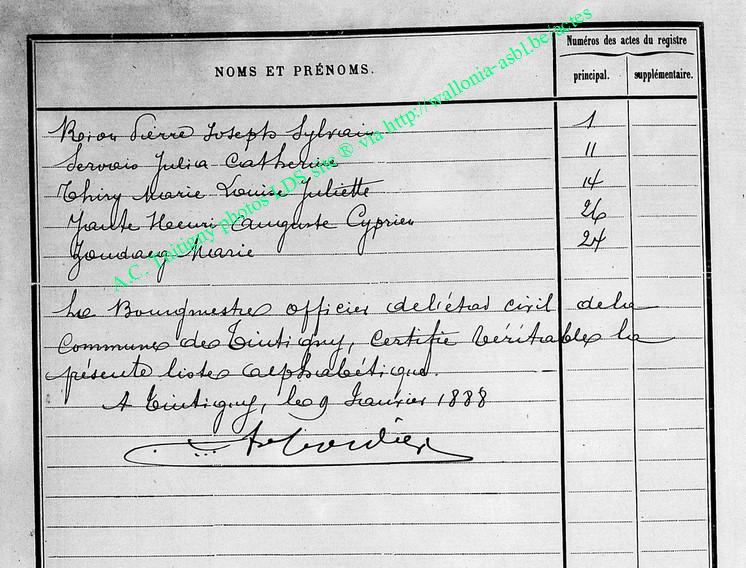 Numéros des actes du registre
NOMS ET PRÉNOMS.
principal. supplémentaire.
Pierre Joseph Sylvain 1
Servais Julia Catherine 11
Thiry Marie Louise Juliette 14
Henri Auguste Cyprien 26
Marie 24
Le Bourgmestre officier de l'état civil de la
Commune de Tintigny, certifie véritable la
présente liste alphabétique.
A Tintigny, le 9 Janvier 1888
A.C. Tintigny photos LDS site ® via http://wallonia-asbl.be/actes